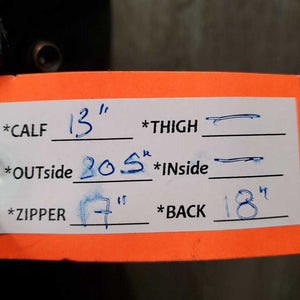 *CALF 13" *THIGH —
*OUTside 20.5" *INside —
*ZIPPER 17" *BACK 18"